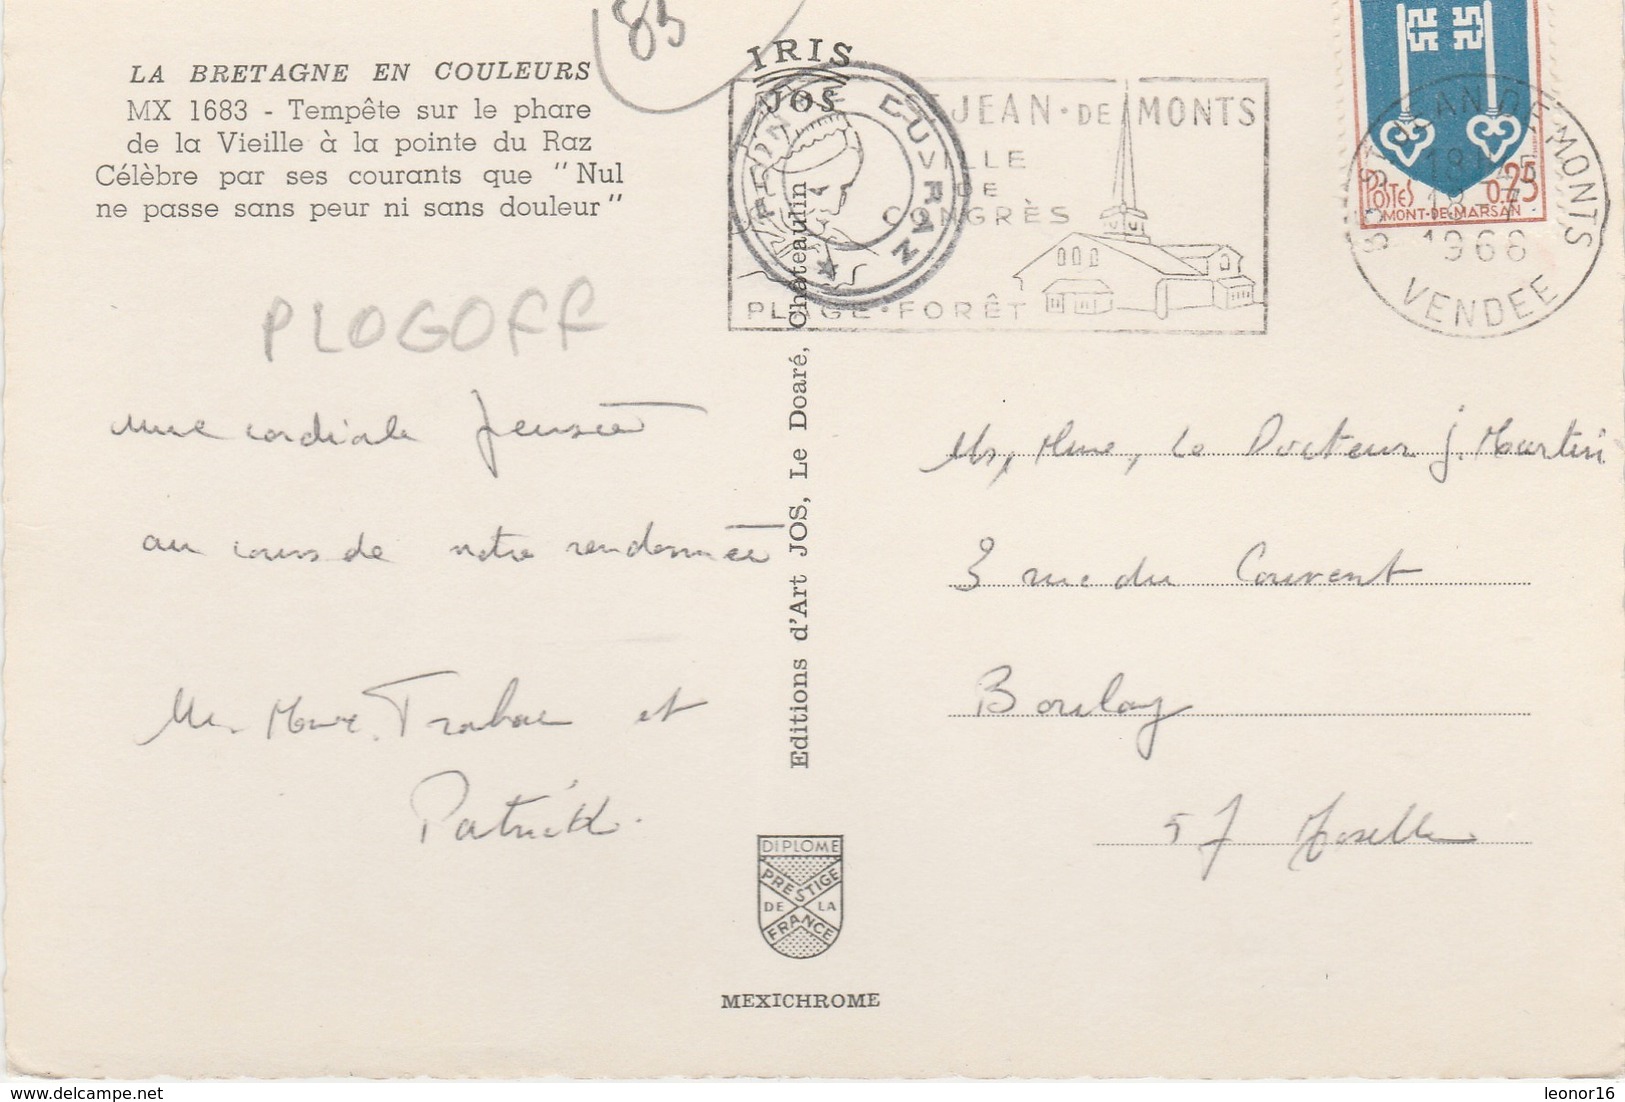 85
LA BRETAGNE EN COULEURS
MX 1683 - Tempête sur le phare
de la Vieille à la pointe du Raz
Célèbre par ses courants que "Nul
ne passe sans peur ni sans douleur"
PLOGOFF
une cordiale pensée
au cours de notre randonnée
Mr. Mme. et
Patrick.
IRIS
JOS
Editions d'Art JOS, Le Doaré, Châteaulin
POINTE DU RAZ
ST JEAN·DE MONTS
VILLE
DE
CONGRÈS
PLAGE·FORÊT
POSTES 0.25
MONT-DE-MARSAN
85 ST JEAN DE MONTS
18H45
1968
VENDEE
Mr, Mme, Le Docteur J. Martin
3 rue du Couvent
Boulay
57 Moselle
DIPLOME
PRESTIGE
DE LA
FRANCE
MEXICHROME
delcampe.net
leonor16